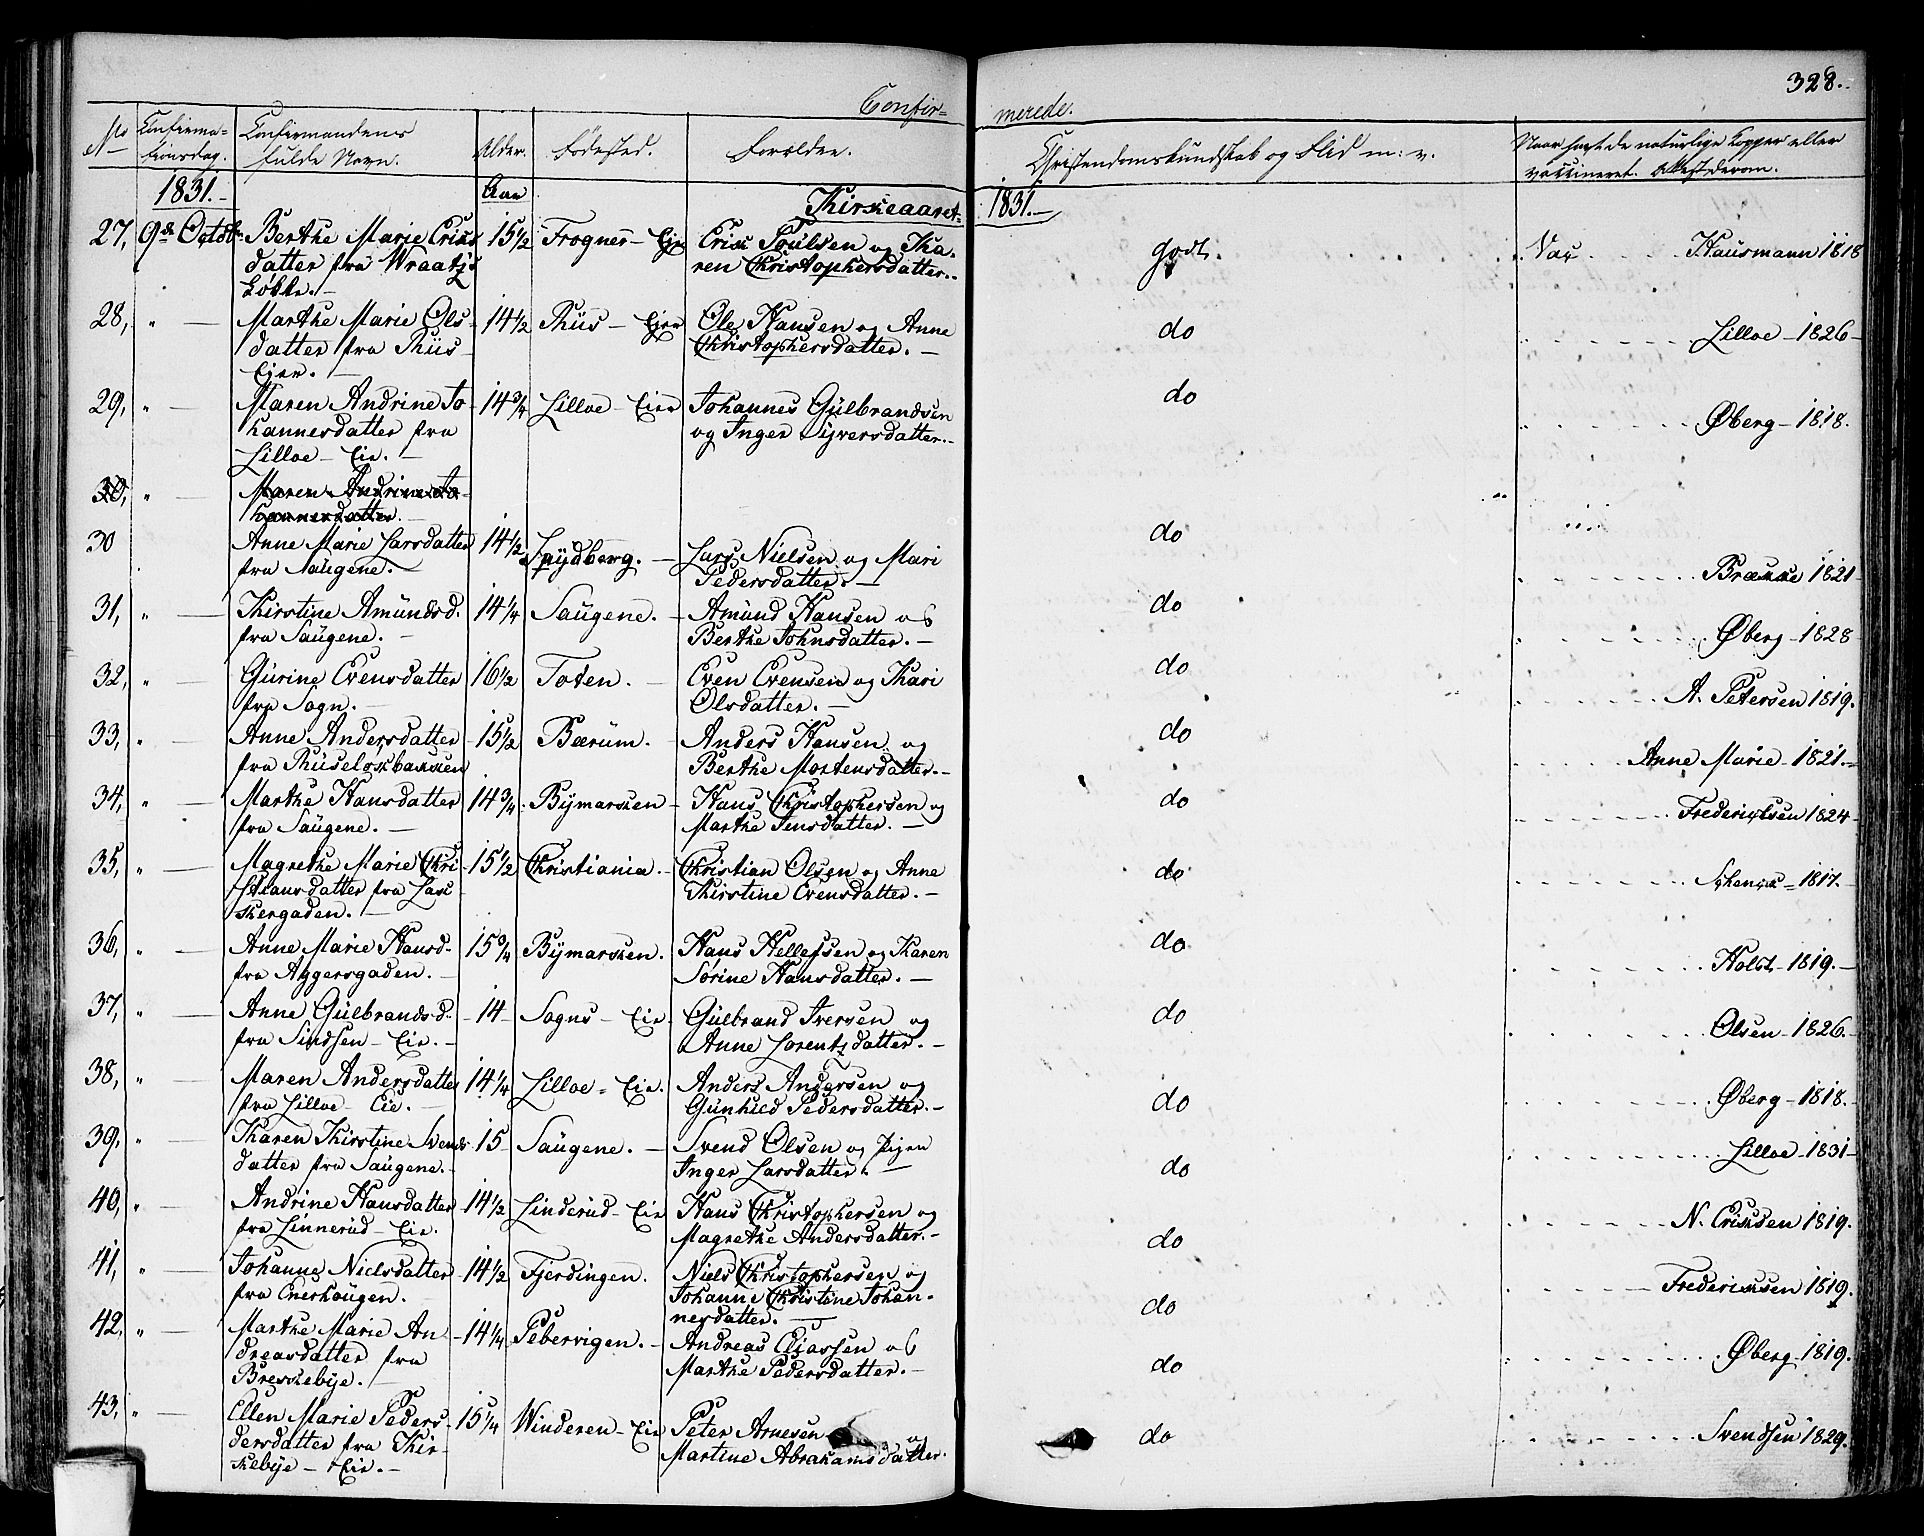 328.
Confir- merede.
No Confirma- Confirmandens Alder. Födested. Forældre. Christendomskundskab og Flid m: v. Naar havt de naturlige Kopper eller
tionsdag. fulde Navn. vaccineret. Attest derom.
1831.- Aar Kirkeaaret 1831.-
27, 9de Octobr Berthe Marie Eriks 15 1/2 Frogner - Eje Erik Poulsen og Ka- godt. Vac . . . Hausmann 1818
datter fra Wraatz ren Christophersdatter.-
Løkke.-
28, " - Marthe Marie Ols- 14 1/2 Ruus - Eier Ole Hansen og Anne do . . . Lilloe - 1826 -
datter fra Ruus- Christophersdatter. -
Eier. -
29, " - Maren Andrine Jo- 14 3/4 Lilloe - Eier Johannes Gulbrandsen do . . . Øberg - 1818.
hannesdatter fra og Inger Syversdatter.-
Lilloe - Eie. -
30, " - Maren Andrine Jo-
hannesdatter. -
30 Anne Marie Larsdatter 14 1/2 Spydberg. - Lars Nielsen og Mari do
fra Saugene. - Pedersdatter. - . . . Brække 1821
31, " - Kirstine Amundsd. 14 1/4 Saugene. - Amund Hansen og do
fra Saugene. - Berthe Johnsdatter. - . . . Øberg - 1828
32, " - Gurine Evensdatter 16 1/2 Toten. - Even Evensen og Kari do
fra Sogn. - Olsdatter. - . . . A. Petersen 1819.
33, " - Anne Andersdatter 15 1/2 Bærum. - Anders Hansen og do
fra Ruseløkbakken Berthe Mortensdatter. - . . . Anne Marie - 1821. -
34, " - Marthe Hansdatter 14 3/4 Bymarken - Hans Christophersen og do
fra Saugene. - Marthe Jensdatter. - . . . Fredericksen 1824 -
35, " - Magrethe Marie Chri- 15 1/2 Christiania. - Christian Olsen og Anne do
stiansdatter fra Las- Kirstine Evensdatter. - . . . Schenck - 1817. -
kergaden. -
36, " - Anne Marie Hansd- 15 3/4 Bymarken. Hans Hellefsen og Karen do
fra Aggersgaden. - Sørine Hansdatter. - . . . Holst - 1819. -
37, " - Anne Gulbrandsd. - 14 - Sogns - Eie Gulbrand Iversen og do
fra Sindsen - Eie. - Anne Lorentzdatter. - . . . Olsen - 1826. -
38, " - Maren Andersdatter 14 1/4 Lilloe - Eie. Anders Andersen og
fra Lilloe - Eie. - Gunhild Pedersdatter. - do . . . Øberg - 1818. -
39, " - Karen Kirstine Svends- 15 - Saugene. - Svend Olsen og Pigen
datter fra Saugene. - Inger Larsdatter. - do . . . Lilloe - 1831 -
40, " - Andrine Hansdatter 14 1/2 Linderud - Eie Hans Christophersen og
fra Linnerud - Eie. Magrethe Andersdatter. - do . . . N. Ericksen 1819.
41, " - Johanne Nielsdatter 14 1/2 Fjerdingen. Niels Christophersen og
fra Enerhaugen. Johanne Christine Johan- . . . Fredericksen 1819.
nesdatter. - do
42, " - Marthe Marie An- 14 1/4 Pebervigen. - Andreas Eliassen og
dreasdatter fra Marthe Pedersdatter. - do . . . Øberg - 1819.
Breskebye. -
43, " - Ellen Marie Peders- 15 1/4 Winderen - Eie Peter Arnesen og
dersdatter fra Kir- Martine Abrahamsdatter. do . . . Svendsen 1829.
kebye - Eie. -